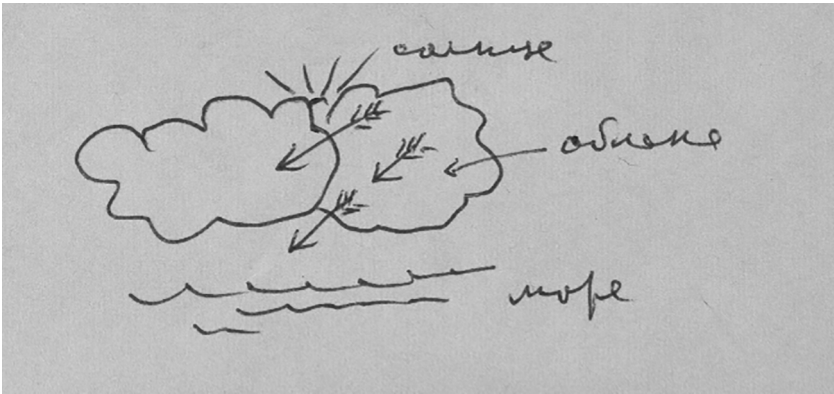 солнце
облако
море